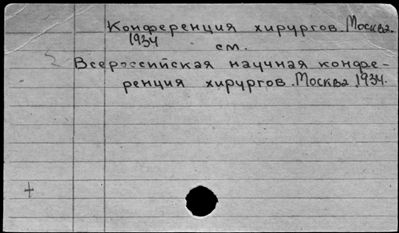 Конференция хирургов. Москва.
1934
см.
Всероссийская научная конфе-
ренция хирургов. Москва, 1934.
+